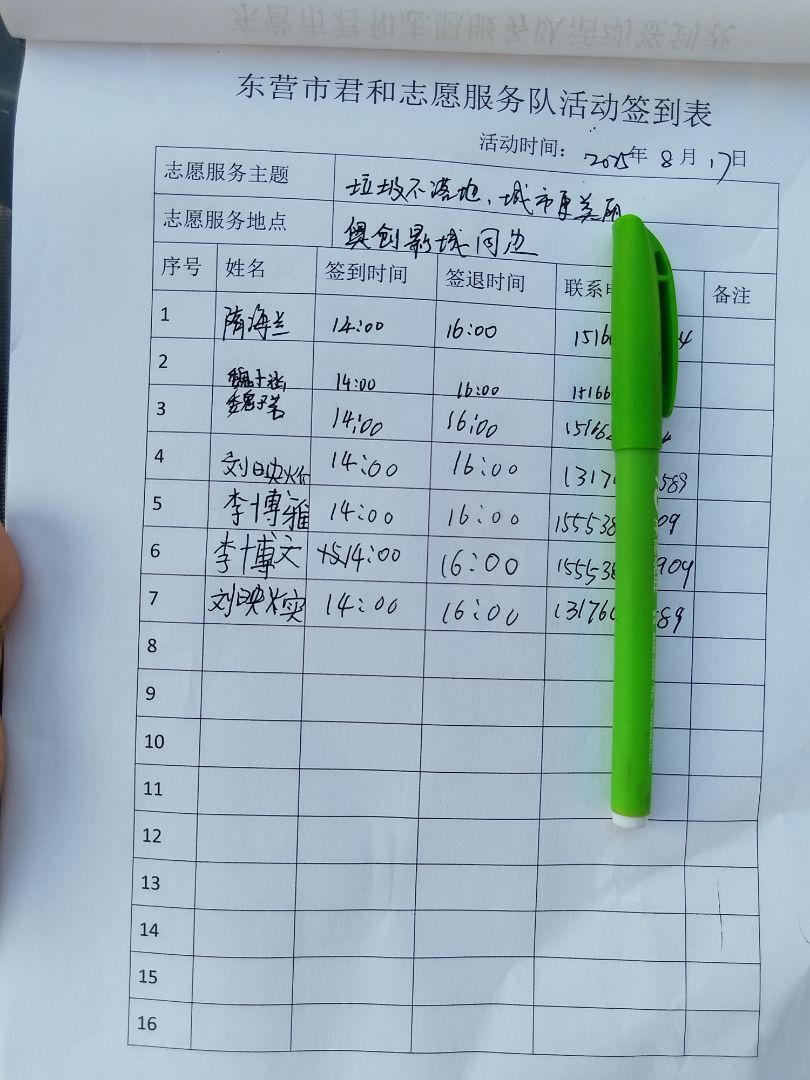 东营市君和志愿服务队活动签到表
活动时间： 2025年 8 月 17日
志愿服务主题 垃圾不落地、城市更美丽
志愿服务地点 俱创影城周边
序号 姓名 签到时间 签退时间 联系 备注
1 隋海兰 14:00 16:00 1516 4
2 魏子涵 14:00 16:00 15166
3 魏子茗 14:00 16:00 15166
4 刘映 14:00 16:00 1317 589
5 李博雅 14:00 16:00 155538 09
6 李博文 14:00 16:00 155538 909
7 刘映实 14:00 16:00 13176 89
8
9
10
11
12
13
14
15
16